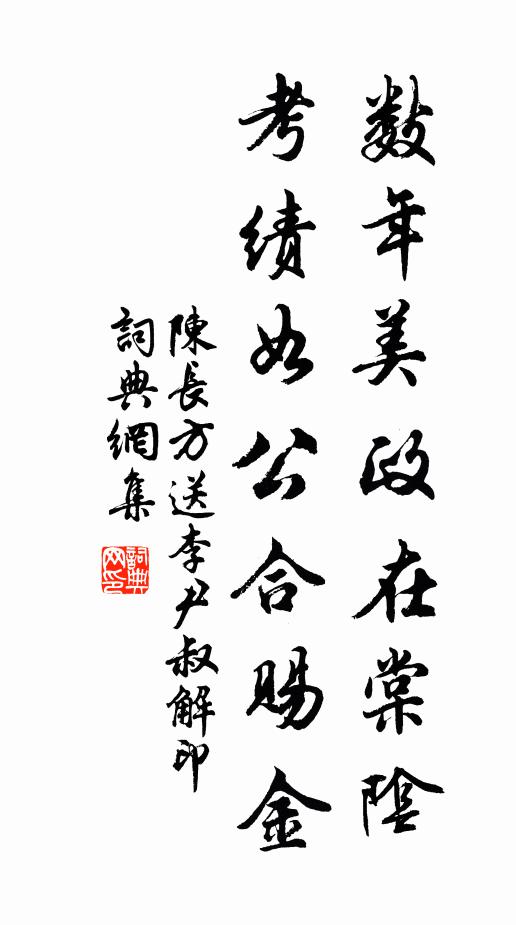 數年美政在棠陰
考績如公合賜金
陳長方送李尹叔解印
詞典網集
詞典网印